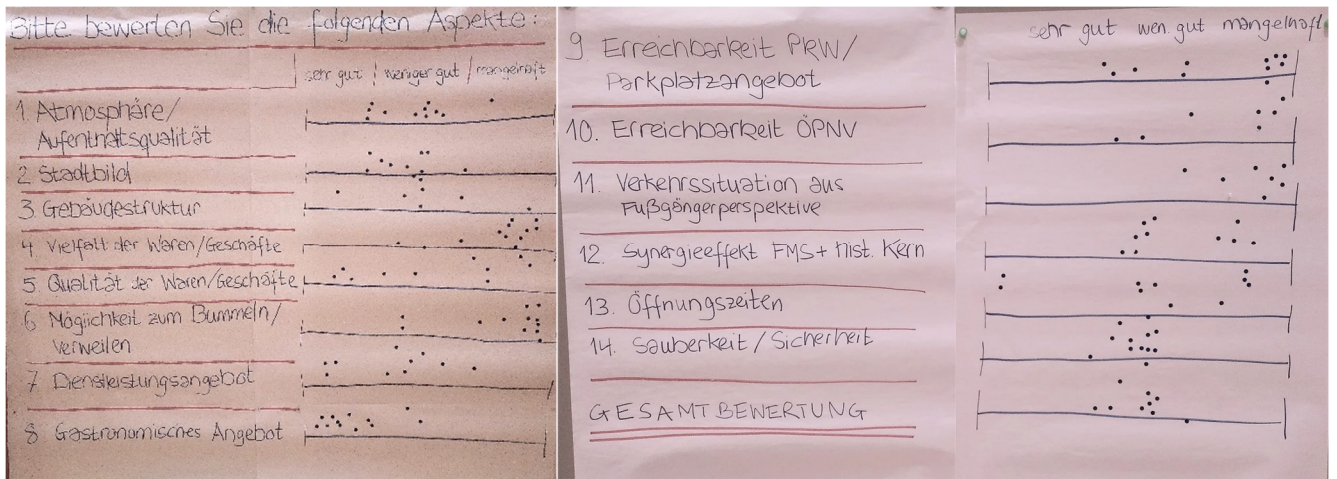 Bitte bewerten Sie die folgenden Aspekte:
sehr gut | weniger gut | mangelhaft
1. Atmosphäre/
Aufenthaltsqualität
2. Stadtbild
3. Gebäudestruktur
4. Vielfalt der Waren/Geschäfte
5. Qualität der Waren/Geschäfte
6. Möglichkeit zum Bummeln/
Verweilen
7. Dienstleistungsangebot
8. Gastronomisches Angebot
9. Erreichbarkeit PKW/
Parkplatzangebot
10. Erreichbarkeit ÖPNV
11. Verkehrssituation aus
Fußgängerperspektive
12. Synergieeffekt FMS + hist. Kern
13. Öffnungszeiten
14. Sauberkeit/Sicherheit
GESAMTBEWERTUNG
sehr gut wen. gut mangelhaft